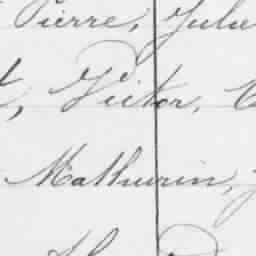 Pierre, Jules
Victor,
Mathurin,